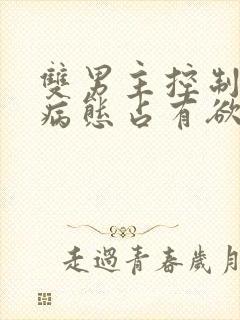 雙男主控制
病態占有欲
走過青春歲月